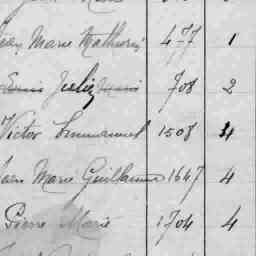 Marie Mathurin 477 1
Louis Juliez Louis 708 2
Victor Emmanuel 1508 4
Jean Marie Guillaume 1647 4
Pierre Marie 1704 4